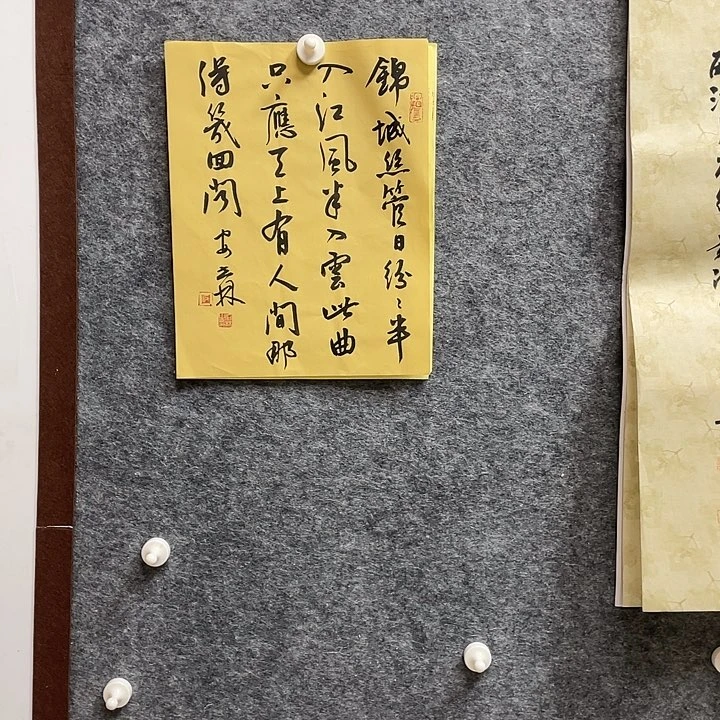 錦城絲管日紛〻半
入江風半入雲此曲
只應天上有人間那
得幾回聞